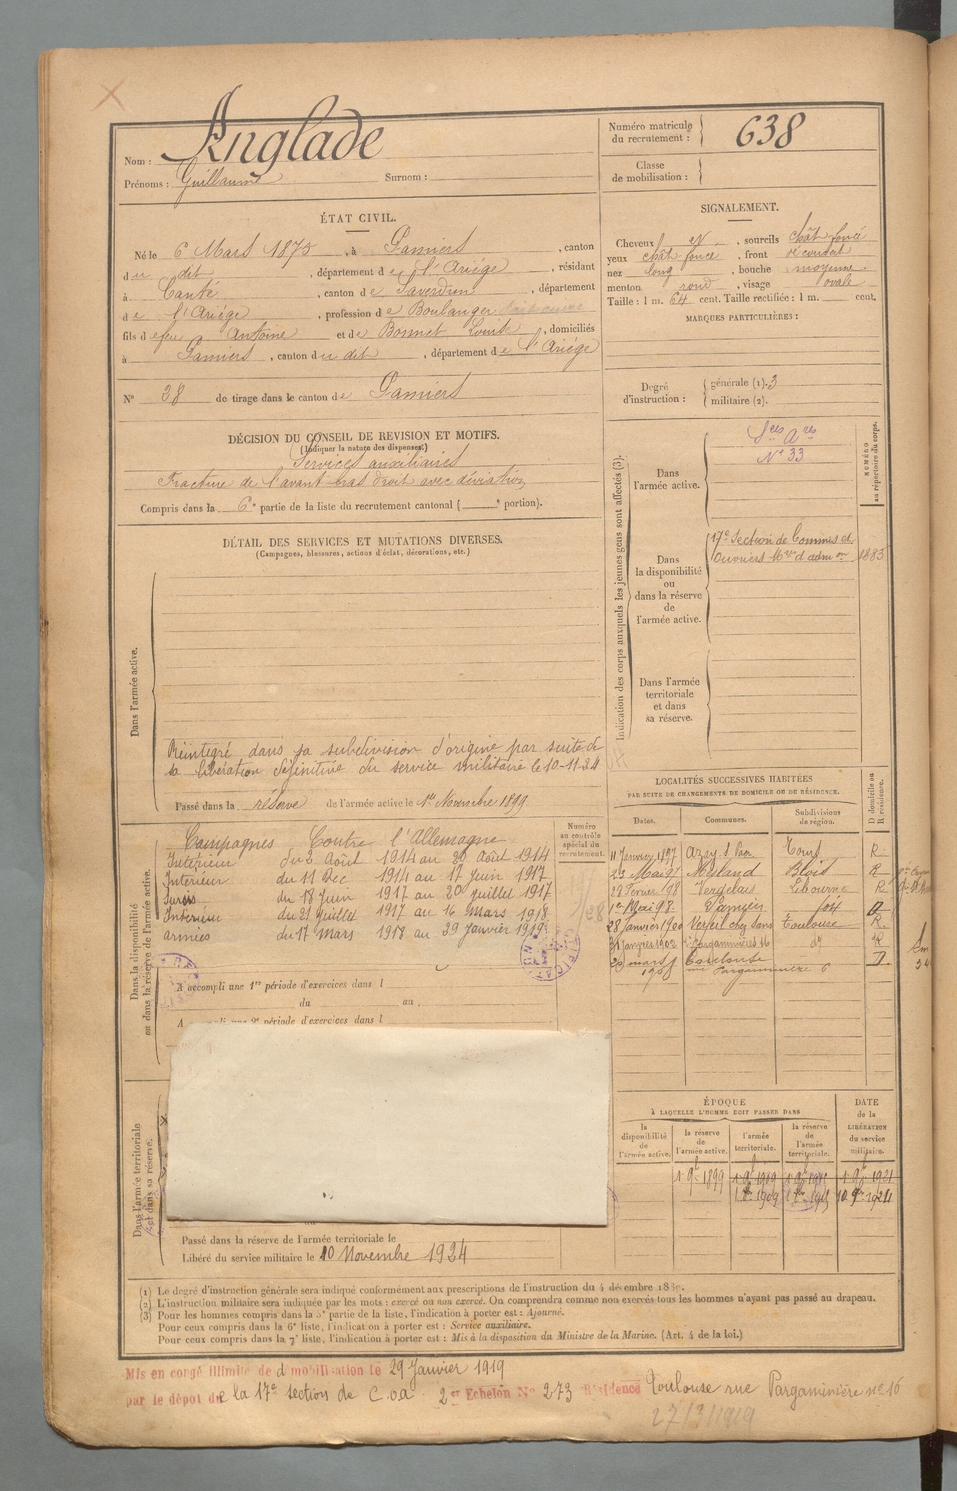 Anglade
Nom :
Prénoms : Guillaume Surnom :
Numéro matricule du recrutement : 638
Classe de mobilisation :
ÉTAT CIVIL.
Né le 6 Mars 1875, à Pamiers, canton
du dit, département de l'Ariége, résidant
à Canté, canton de Saverdun, département
de l'Ariége, profession de Boulanger
fils de feu Antoine et de Bonnet Louise, domiciliés
à Pamiers, canton du dit, département de l'Ariége
N° 38 de tirage dans le canton de Pamiers
DÉCISION DU CONSEIL DE REVISION ET MOTIFS.
(Indiquer la nature des dispenses.)
Services auxiliaires
Fracture de l'avant-bras droit avec déviation
Compris dans la 6e partie de la liste du recrutement cantonal ( e portion).
SIGNALEMENT.
Cheveux N, sourcils chât foncé
yeux chât foncé, front découvert
nez long, bouche moyenne
menton rond, visage ovale
Taille : 1 m. 64 cent. Taille rectifiée : 1 m. cent.
MARQUES PARTICULIÈRES :
Degré d'instruction : générale (1). 3
militaire (2).
DÉTAIL DES SERVICES ET MUTATIONS DIVERSES.
(Campagnes, blessures, actions d'éclat, décorations, etc.)
Dans l'armée active.
Réintégré dans sa subdivision d'origine par suite de
sa libération définitive du service militaire le 10-11-24
Passé dans la réserve de l'armée active le 1er Novembre 1899
Indication des corps auxquels les jeunes gens sont affectés (3).
NUMÉRO au répertoire du corps.
Dans l'armée active.
Sces Ares
N° 33
Dans la disponibilité ou dans la réserve de l'armée active.
17e Section de Commis et
Ouvriers Mres d'admon 1883
Dans l'armée territoriale et dans sa réserve.
Dans la disponibilité ou dans la réserve de l'armée active.
Campagnes Contre l'Allemagne
Intérieur du 3 Août 1914 au 20 Août 1914
Intérieur du 11 Dec 1914 au 17 Juin 1917
Sursis du 18 Juin 1917 au 20 Juillet 1917
Intérieur du 21 Juillet 1917 au 16 Mars 1918
armées du 17 Mars 1918 au 29 Janvier 1919
Numéro au contrôle spécial du recrutement.
A accompli une 1re période d'exercices dans l
du au
A accompli une 2e période d'exercices dans l
LOCALITÉS SUCCESSIVES HABITÉES
PAR SUITE DE CHANGEMENTS DE DOMICILE OU DE RÉSIDENCE.
D domicile ou R résidence.
Dates. Communes. Subdivisions de région.
11 Janvier 1897 Azay s. Cher Tours R.
23 Mai 97 Mesland Blois R
24 Février 98 Verdelais Libourne R
1er Mai 98 Pamiers foix D
28 Janvier 1900 Verfeil Toulouse R.
1902 Pargaminières 16 do R
29 mars 1908 Toulouse D
rue Pargaminière 6
ÉPOQUE
À LAQUELLE L'HOMME DOIT PASSER DANS
DATE de la LIBÉRATION du service militaire.
la disponibilité de l'armée active.
la réserve de l'armée active.
l'armée territoriale.
la réserve de l'armée territoriale.
1 9bre 1899 1 9bre 1909 1 9bre 1921
10 9bre 1921
Dans l'armée territoriale et dans sa réserve.
Passé dans la réserve de l'armée territoriale le
Libéré du service militaire le 10 Novembre 1924
(1) Le degré d'instruction générale sera indiqué conformément aux prescriptions de l'instruction du 4 décembre 1889.
(2) L'instruction militaire sera indiquée par les mots : exercé ou non exercé. On comprendra comme non exercés tous les hommes n'ayant pas passé au drapeau.
(3) Pour les hommes compris dans la 5e partie de la liste, l'indication à porter est : Ajourné.
Pour ceux compris dans la 6e liste, l'indication à porter est : Service auxiliaire.
Pour ceux compris dans la 7e liste, l'indication à porter est : Mis à la disposition du Ministre de la Marine. (Art. 4 de la loi.)
Mis en congé illimité de démobilisation le 29 Janvier 1919
par le dépôt de la 17e section de C.O.A. 2e Echelon N° 273 Résidence Toulouse rue Pargaminière n° 16
27/3/1919